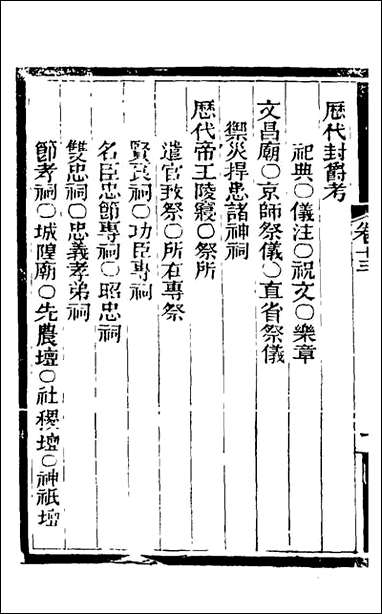 卷十三
歷代封爵考
祀典○儀注○祝文○樂章
文昌廟○京師祭儀○直省祭儀
禦災捍患諸神祠
歷代帝王陵寢○祭所
遣官致祭○所在專祭
賢良祠○功臣專祠
名臣忠節專祠○昭忠祠
雙忠祠○忠義孝弟祠
節孝祠○城隍廟○先農壇○社稷壇○神祇壇